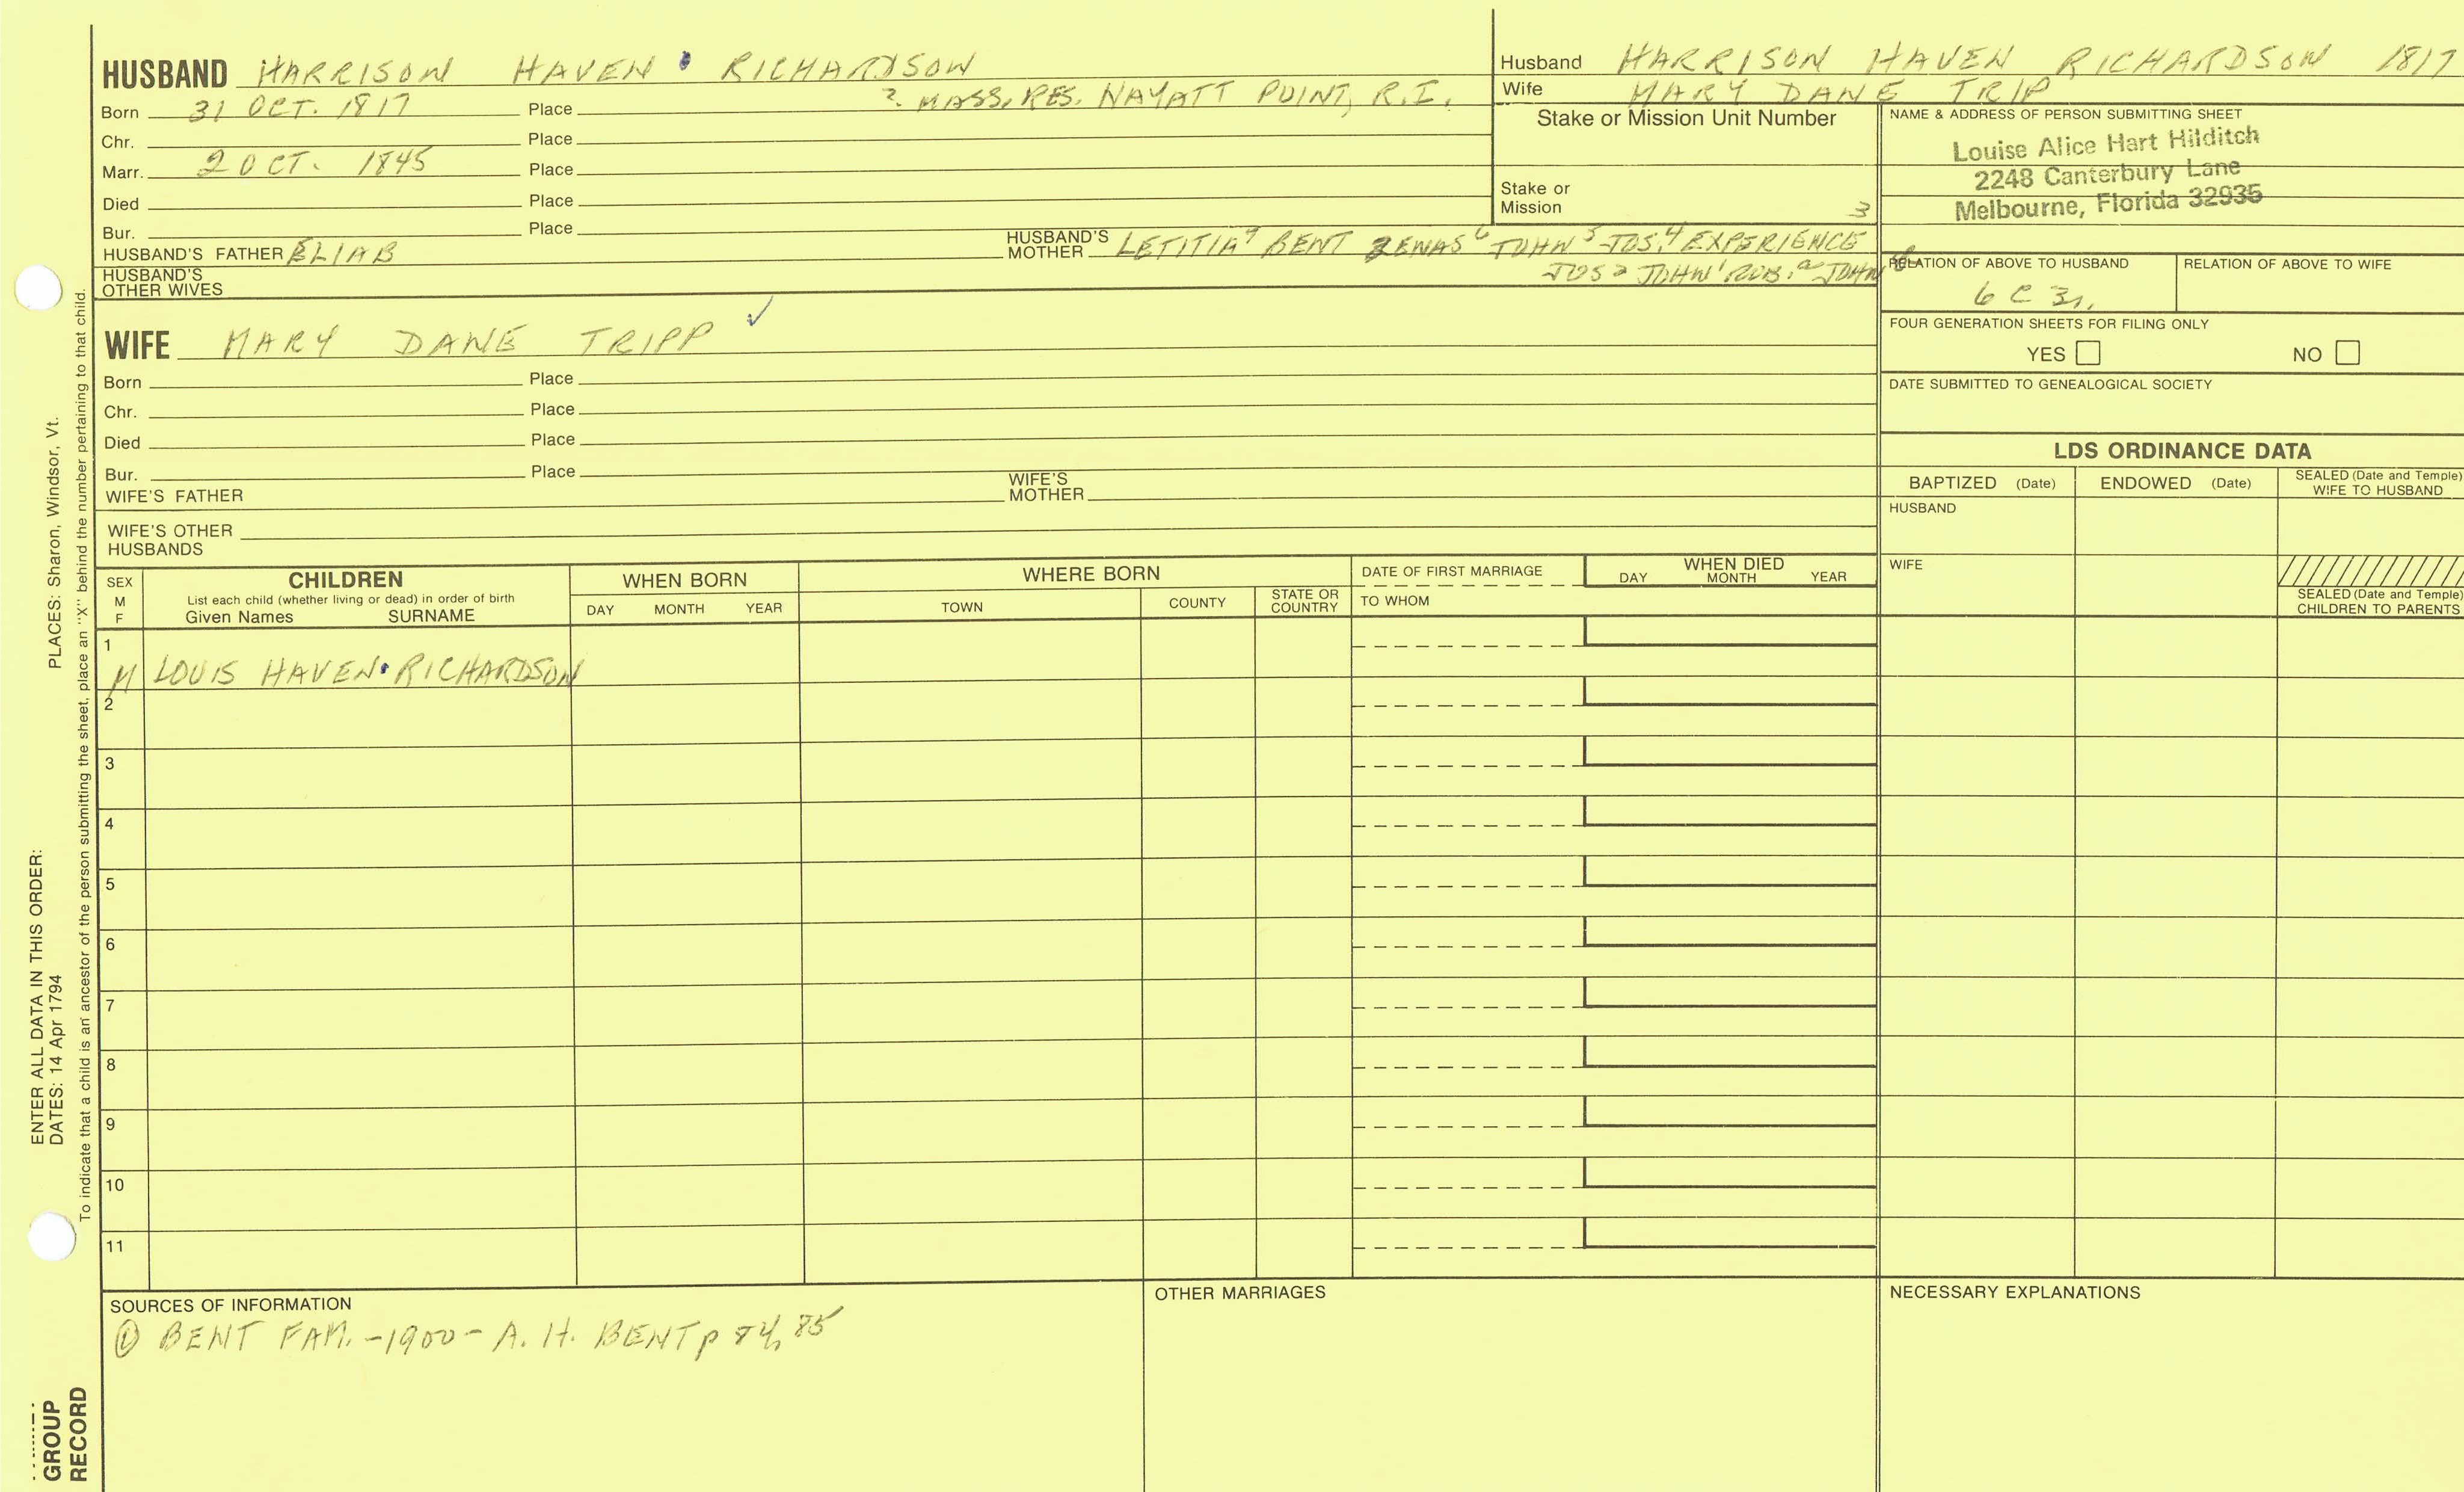 HUSBAND HARRISON HAVEN RICHARDSON
Born 31 OCT. 1817 Place ? MASS, RES. NAYATT POINT, R.I.
Chr. Place
Marr. 2 OCT. 1845 Place
Died Place
Bur. Place
HUSBAND'S FATHER ELIAB HUSBAND'S MOTHER LETITIA7 BENT ZENAS6 JOHN5 JOS.4 EXPERIENCE 3
JOS2 JOHN1 ROB.a JOHN
HUSBAND'S OTHER WIVES
Husband HARRISON HAVEN RICHARDSON 1817
Wife MARY DANE TRIP
Stake or Mission Unit Number
Stake or Mission
NAME & ADDRESS OF PERSON SUBMITTING SHEET
Louise Alice Hart Hilditch
2248 Canterbury Lane
Melbourne, Florida 32935
RELATION OF ABOVE TO HUSBAND RELATION OF ABOVE TO WIFE
6 C 3r.
FOUR GENERATION SHEETS FOR FILING ONLY
YES NO
DATE SUBMITTED TO GENEALOGICAL SOCIETY
WIFE MARY DANE TRIPP ✓
Born Place
Chr. Place
Died Place
Bur. Place
WIFE'S FATHER WIFE'S MOTHER
WIFE'S OTHER HUSBANDS
LDS ORDINANCE DATA
BAPTIZED (Date) ENDOWED (Date) SEALED (Date and Temple) WIFE TO HUSBAND
HUSBAND
WIFE
SEALED (Date and Temple) CHILDREN TO PARENTS
SEX M F
CHILDREN
List each child (whether living or dead) in order of birth
Given Names SURNAME
WHEN BORN
DAY MONTH YEAR
WHERE BORN
TOWN COUNTY STATE OR COUNTRY
DATE OF FIRST MARRIAGE
TO WHOM
WHEN DIED
DAY MONTH YEAR
1
M LOUIS HAVEN RICHARDSON
2
3
4
5
6
7
8
9
10
11
SOURCES OF INFORMATION
① BENT FAM. -1900- A. H. BENT p 84, 85
OTHER MARRIAGES
NECESSARY EXPLANATIONS
ENTER ALL DATA IN THIS ORDER:
DATES: 14 Apr 1794 PLACES: Sharon, Windsor, Vt.
To indicate that a child is an ancestor of the person submitting the sheet, place an "X" behind the number pertaining to that child.
GROUP
RECORD